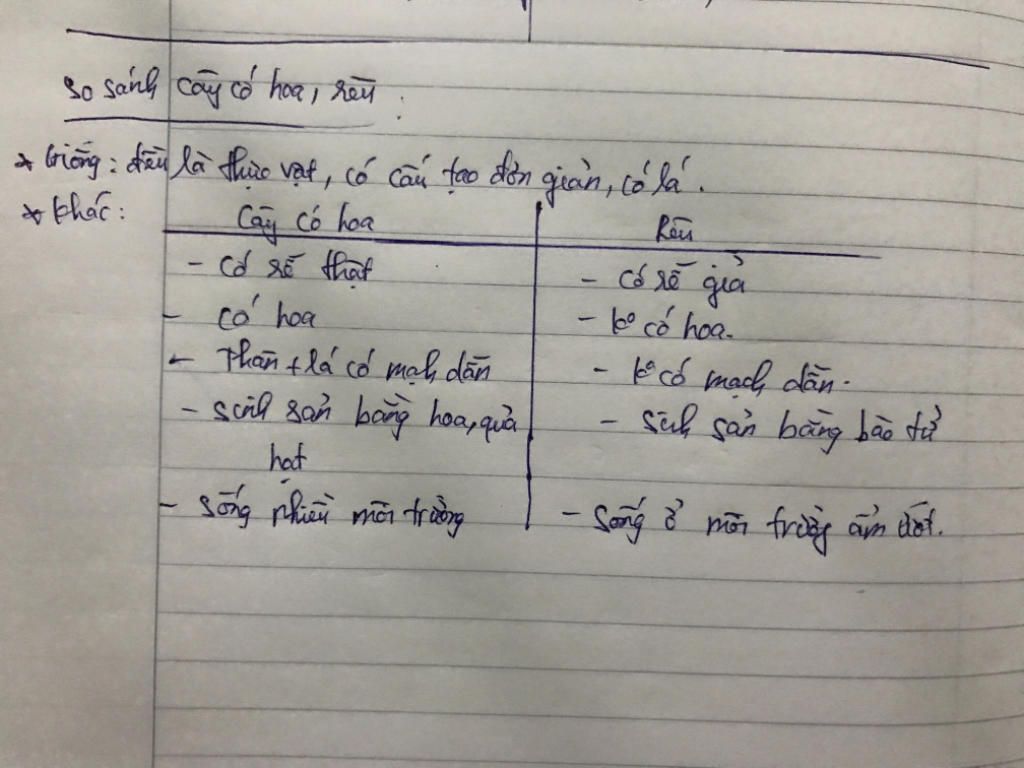 so sánh cây có hoa, rêu.
* Giống: đều là thực vật, có cấu tạo đơn giản, có lá.
* Khác:
Cây có hoa Rêu
- Có rễ thật - Có rễ giả
- Có hoa - Ko có hoa.
- Thân + lá có mạch dẫn - Ko có mạch dẫn.
- Sinh sản bằng hoa, quả - Sinh sản bằng bào tử
hạt
- Sống nhiều môi trường - Sống ở môi trường ẩm ướt.